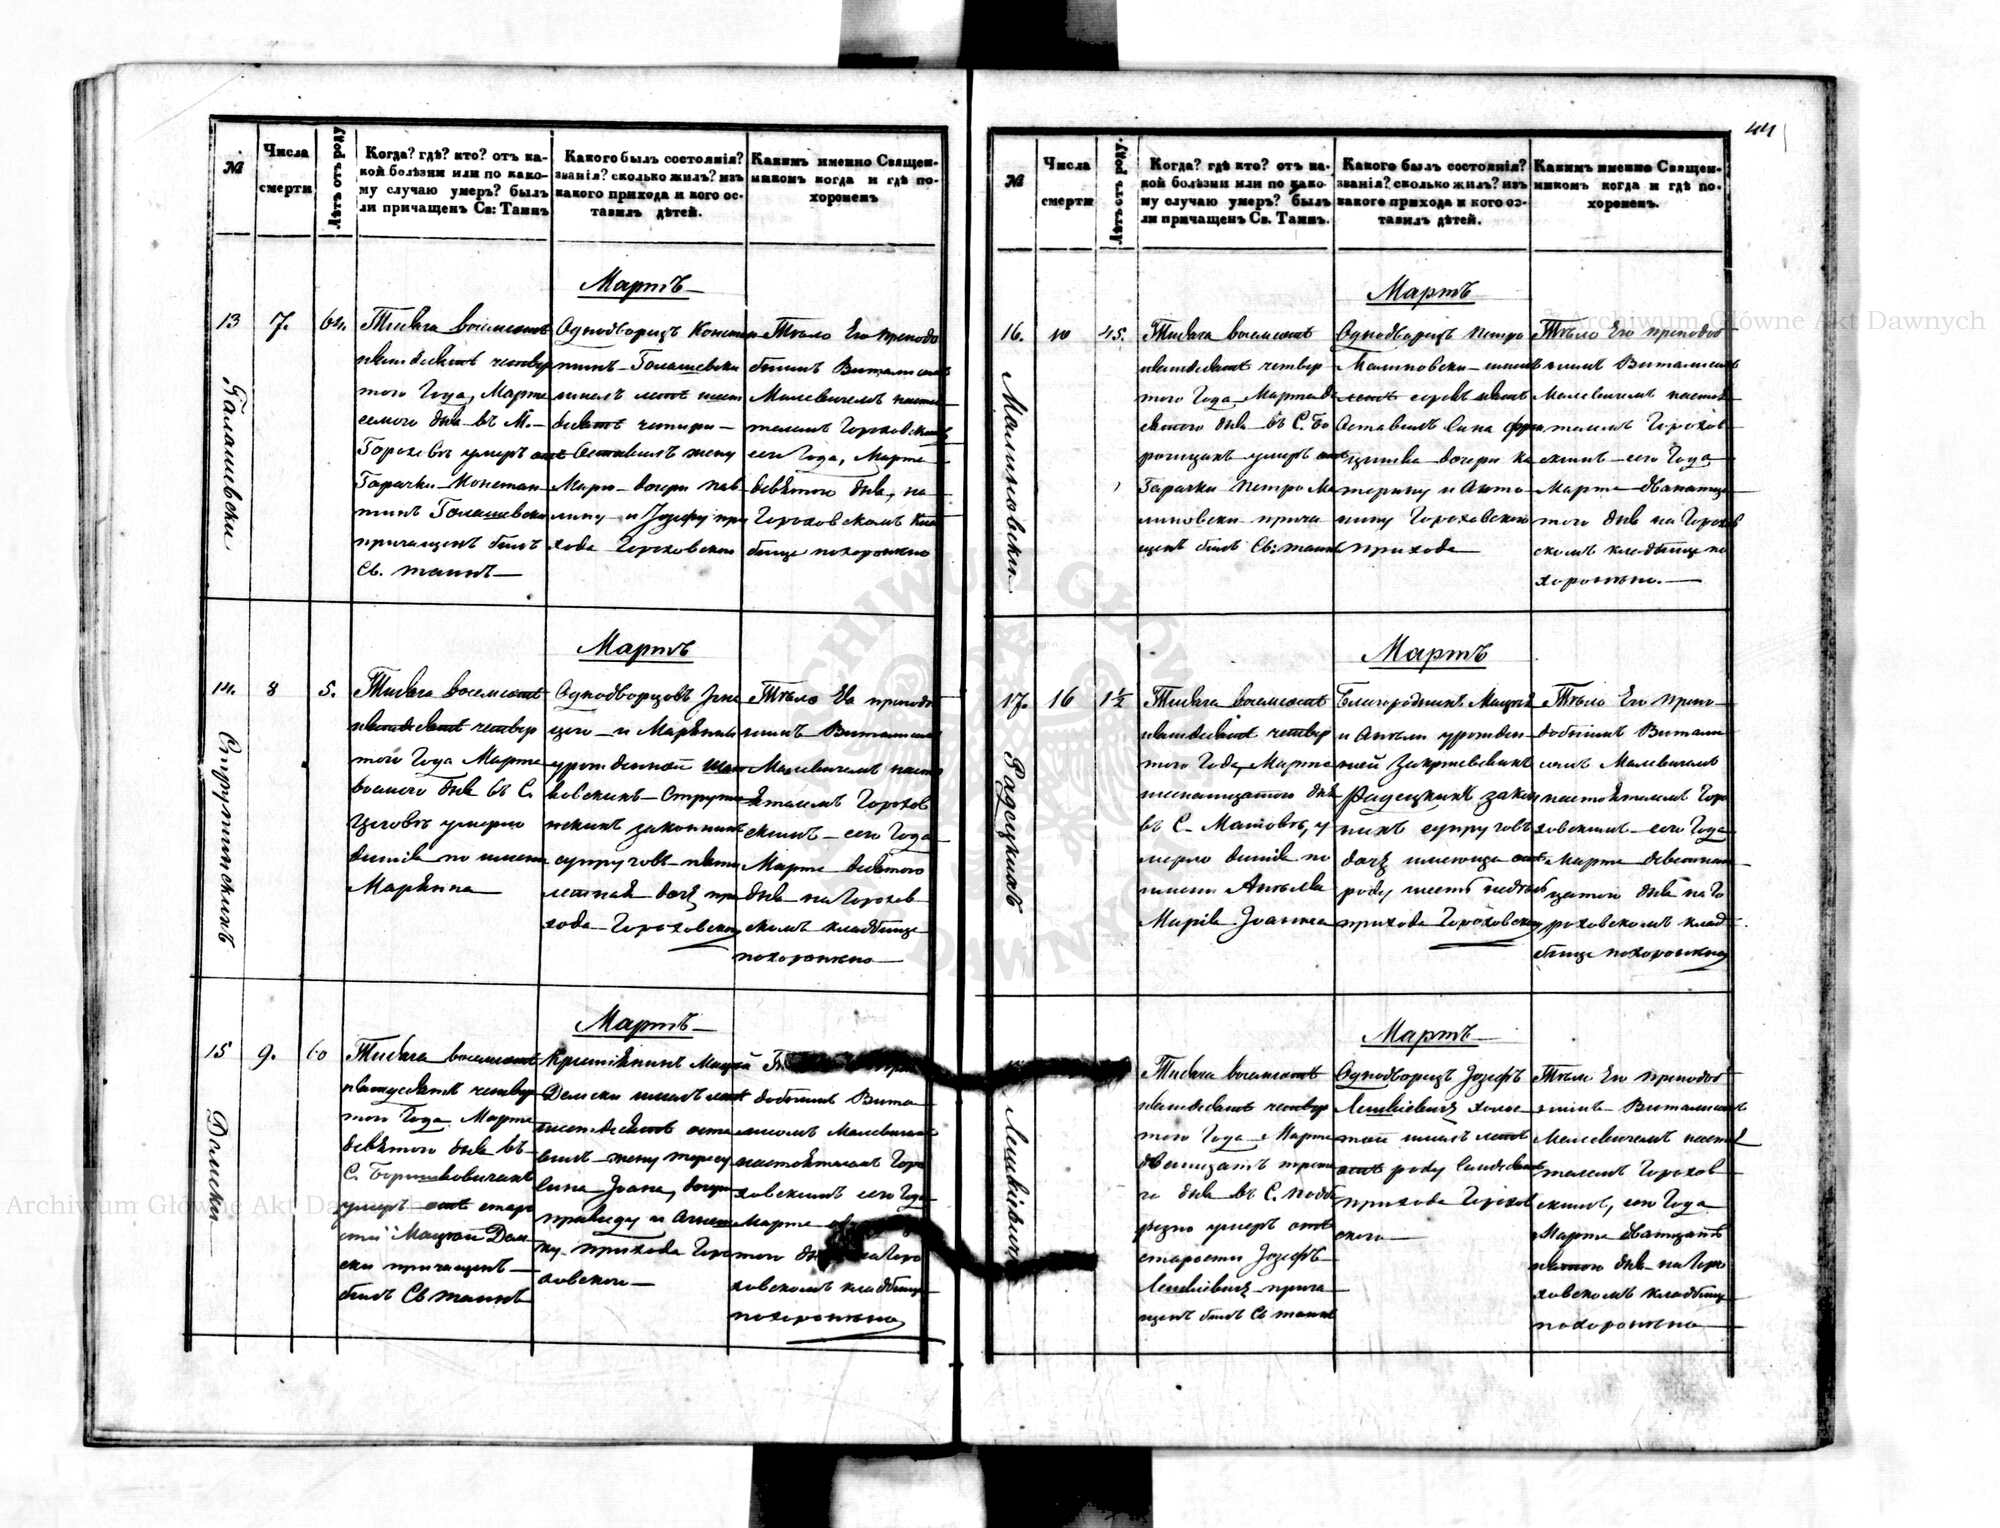 44
№
Числа
смерти
Лѣтъ отъ роду
Когда? гдѣ? кто? отъ ка-
кой болѣзни или по како-
му случаю умеръ? былъ
ли причащенъ Св: Таинъ
Какого былъ состоянія?
званія? сколько жилъ? изъ
какого прихода и кого ос-
тавилъ дѣтей.
Какимъ именно Священ-
никомъ когда и гдѣ по-
хороненъ
Мартъ
13
7.
64.
Галашевски
Тысяча восемсотъ
пятдесятъ четвер
того Года, Марта
семого дня въ М.
Гороховъ умеръ отъ
Гарачки Констан
тинъ Голашевски
причащенъ былъ
Св. таинъ
Однодворецъ Констан
тинъ Голашевски
имелъ летъ шест
десятъ четыри
Оставилъ жену
Мари дочери Пав
лину и Јозефу при
хода Гороховскои
Тѣло Его преподо
бнимъ Виталисомъ
Малевичемъ насто
телемъ Гороховскимъ
сего Года, Марта
девятого дня, на
Гороховскомъ Клад
бище похоронено
Мартъ
14.
8
5.
Струтинскихъ
Тысяча восемсотъ
пятдесятъ четвер
того Года Марта
восмого дня въ С.
умерло
дитя по имени
Маріянна
Однодворцовъ
и Маріянни
урожденной
ковскихъ Струти
нскихъ законнихъ
супруговъ пяти
летная дочь при
хода Гороховскои
Тѣло Ея преподо
Виталисомъ
Малевичемъ насто
ятелемъ Горохов
скимъ сего Года
Марта десятого
дня на Горохов
скомъ кладбище
похоронено
Мартъ
15
9.
60
Далиски
Тысяча восемсотъ
пятдесятъ четвер
того Года Марта
девятого дня въ
С.
умеръ отъ старо
сти Мацѣй Дали
ски причащенъ
былъ Св таинъ
Крестянинъ Мацѣй
Далиски имелъ летъ
шестдесятъ оста
вилъ жену Тересу
сина Јоана, дочери
и Агнеш
ку прихода Горо
ховскои
добнимъ Вита
лисомъ Малевичемъ
настоятелемъ Горо
ховскимъ сего Года
Марта
того дня на Горо
ховскомъ кладбище
похоронено
№
Числа
смерти
Лѣтъ отъ роду.
Когда? гдѣ? кто? отъ ка-
кой болѣзни или по како-
му случаю умеръ? былъ
ли причащенъ Св. Таинъ.
Какого былъ состоянія?
званія? сколько жилъ? изъ
какого прихода и кого ос-
тавилъ дѣтей.
Какимъ именно Священ-
никомъ когда и гдѣ по-
хороненъ.
Мартъ
16.
10
45.
Малиновски.
Тысяча восемсотъ
пятдесятъ четвер
того Года Марта де
сятого дня въ С. Бо
умеръ отъ
Гарачки Петро Ма
линовски прича
щенъ былъ Св: таинъ
Однодворецъ Петро
Малиновски имелъ
летъ сорокъ пять
Оставилъ сина Фран
цишка дочери Ка
терину и Анто
нину Гороховскои
прихода
Тѣло Его преподоб
нимъ Виталисомъ
Малевичемъ настоя
телемъ Горохов
скимъ сего Года
Марта дванатца
того дня на Горохов
скомъ кладбище по
хоронено.
Мартъ
17.
16
1½
Радецкихъ
Тысяча восемсотъ
пятдесятъ четвер
того Года, Марта
шеснатцатого дня
въ С. Матовъ, у
мерло дитя по
имени Ангеля
Марія Јоанна
Благороднихъ Мацѣя
и Ангели урожден
ной
Радецкихъ закон
нихъ супруговъ
дочь имеюща отъ
роду шесть недель
прихода Гороховскои
Тѣло Его препо
добнимъ Витали
сомъ Малевичемъ
настоятелемъ Горо
ховскимъ сего Года
Марта
цатого дня на Го
роховскомъ клад
бище похоронено
Мартъ
Тысяча восемсотъ
пятдесятъ четвер
того Года Марта
двацатъ трете
го дня въ С. Подбе
резно умеръ отъ
старости Јозефъ
прича
щенъ былъ Св таинъ
Однодворецъ Јозефъ
холос
той имелъ летъ
отъ роду
прихода Горохов
ского
Тѣло Его преподоб
нимъ Виталисомъ
Малевичемъ настоя
телемъ Горохов
скимъ, сего Года
Марта двацатъ
пятого дня на Горо
ховскомъ кладбище
похоронено
Archiwum Główne Akt Dawnych
Archiwum Główne Akt Dawnych
ARCHIWUM GŁÓWNE AKT DAWNYCH